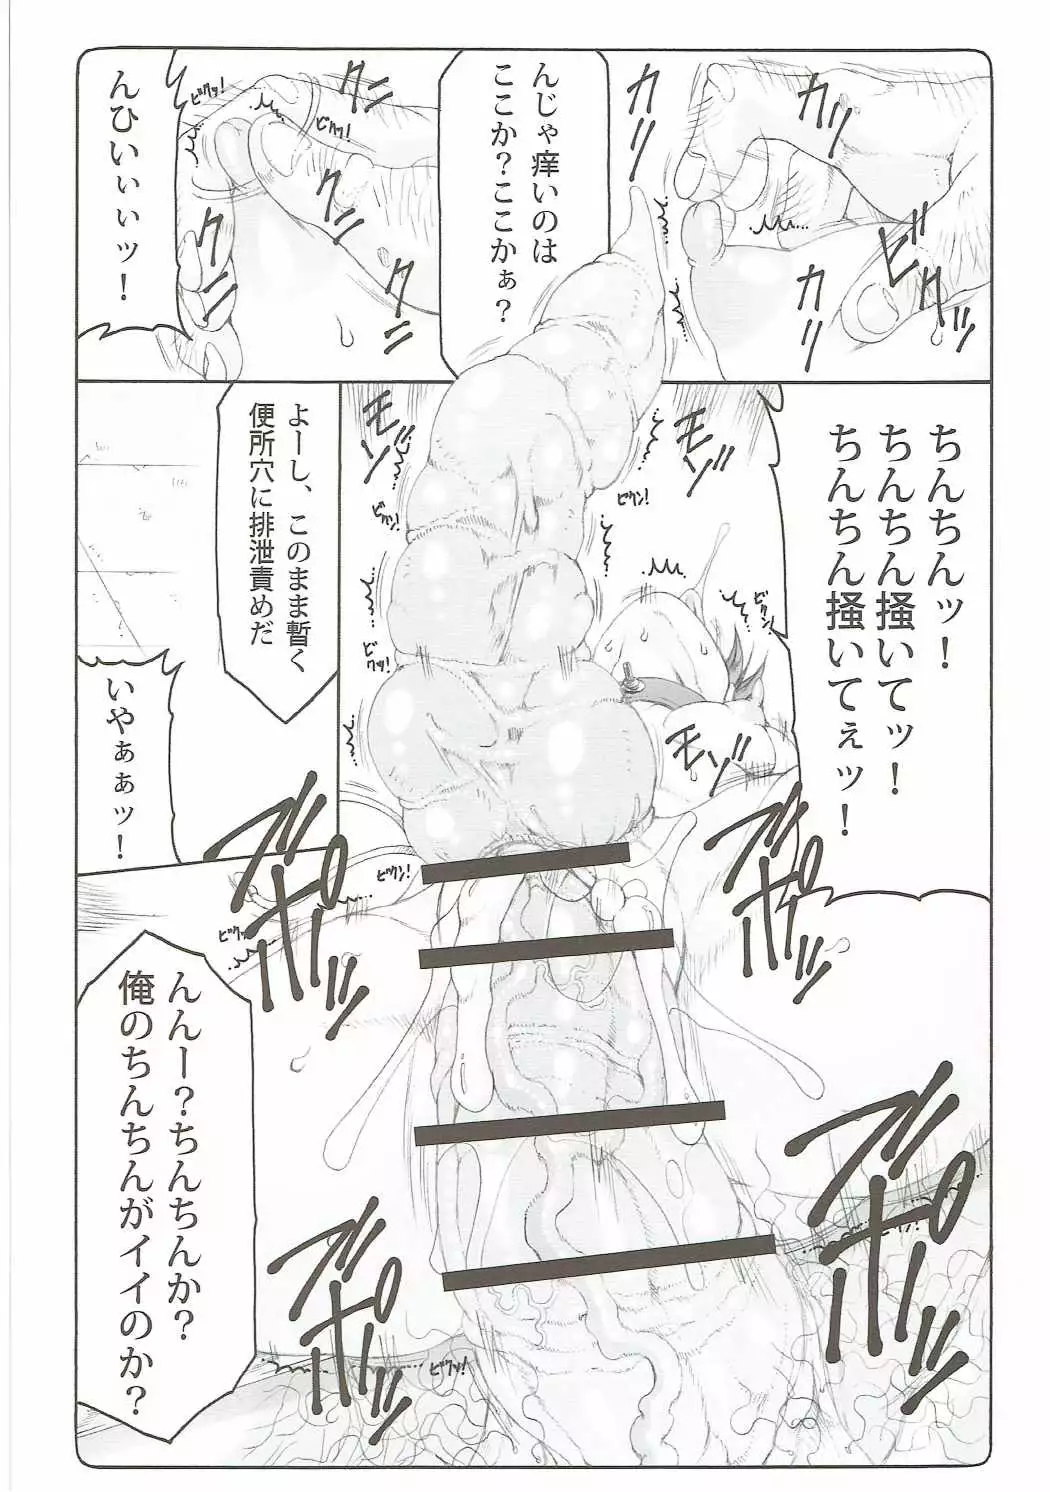 カリ
カリ
カリ
ビクッ
んじゃ痒いのは
ここか？ここかぁ？
クニ
クニ
クニ
クニ
ビクッ!
ビクッ!
んひいぃぃッ！
ちんちんッ！
ちんちん掻いてッ！
ちんちん掻いてぇッ！
モゾ
モゾ
モゾ
ビクン!
ビクン!
ビクン!
ビクッ!
よーし、このまま暫く
便所穴に排泄責めだ
いやぁぁッ！
ビクン!
んんー？ちんちんか？
俺のちんちんがイイのか？
ビクッ!